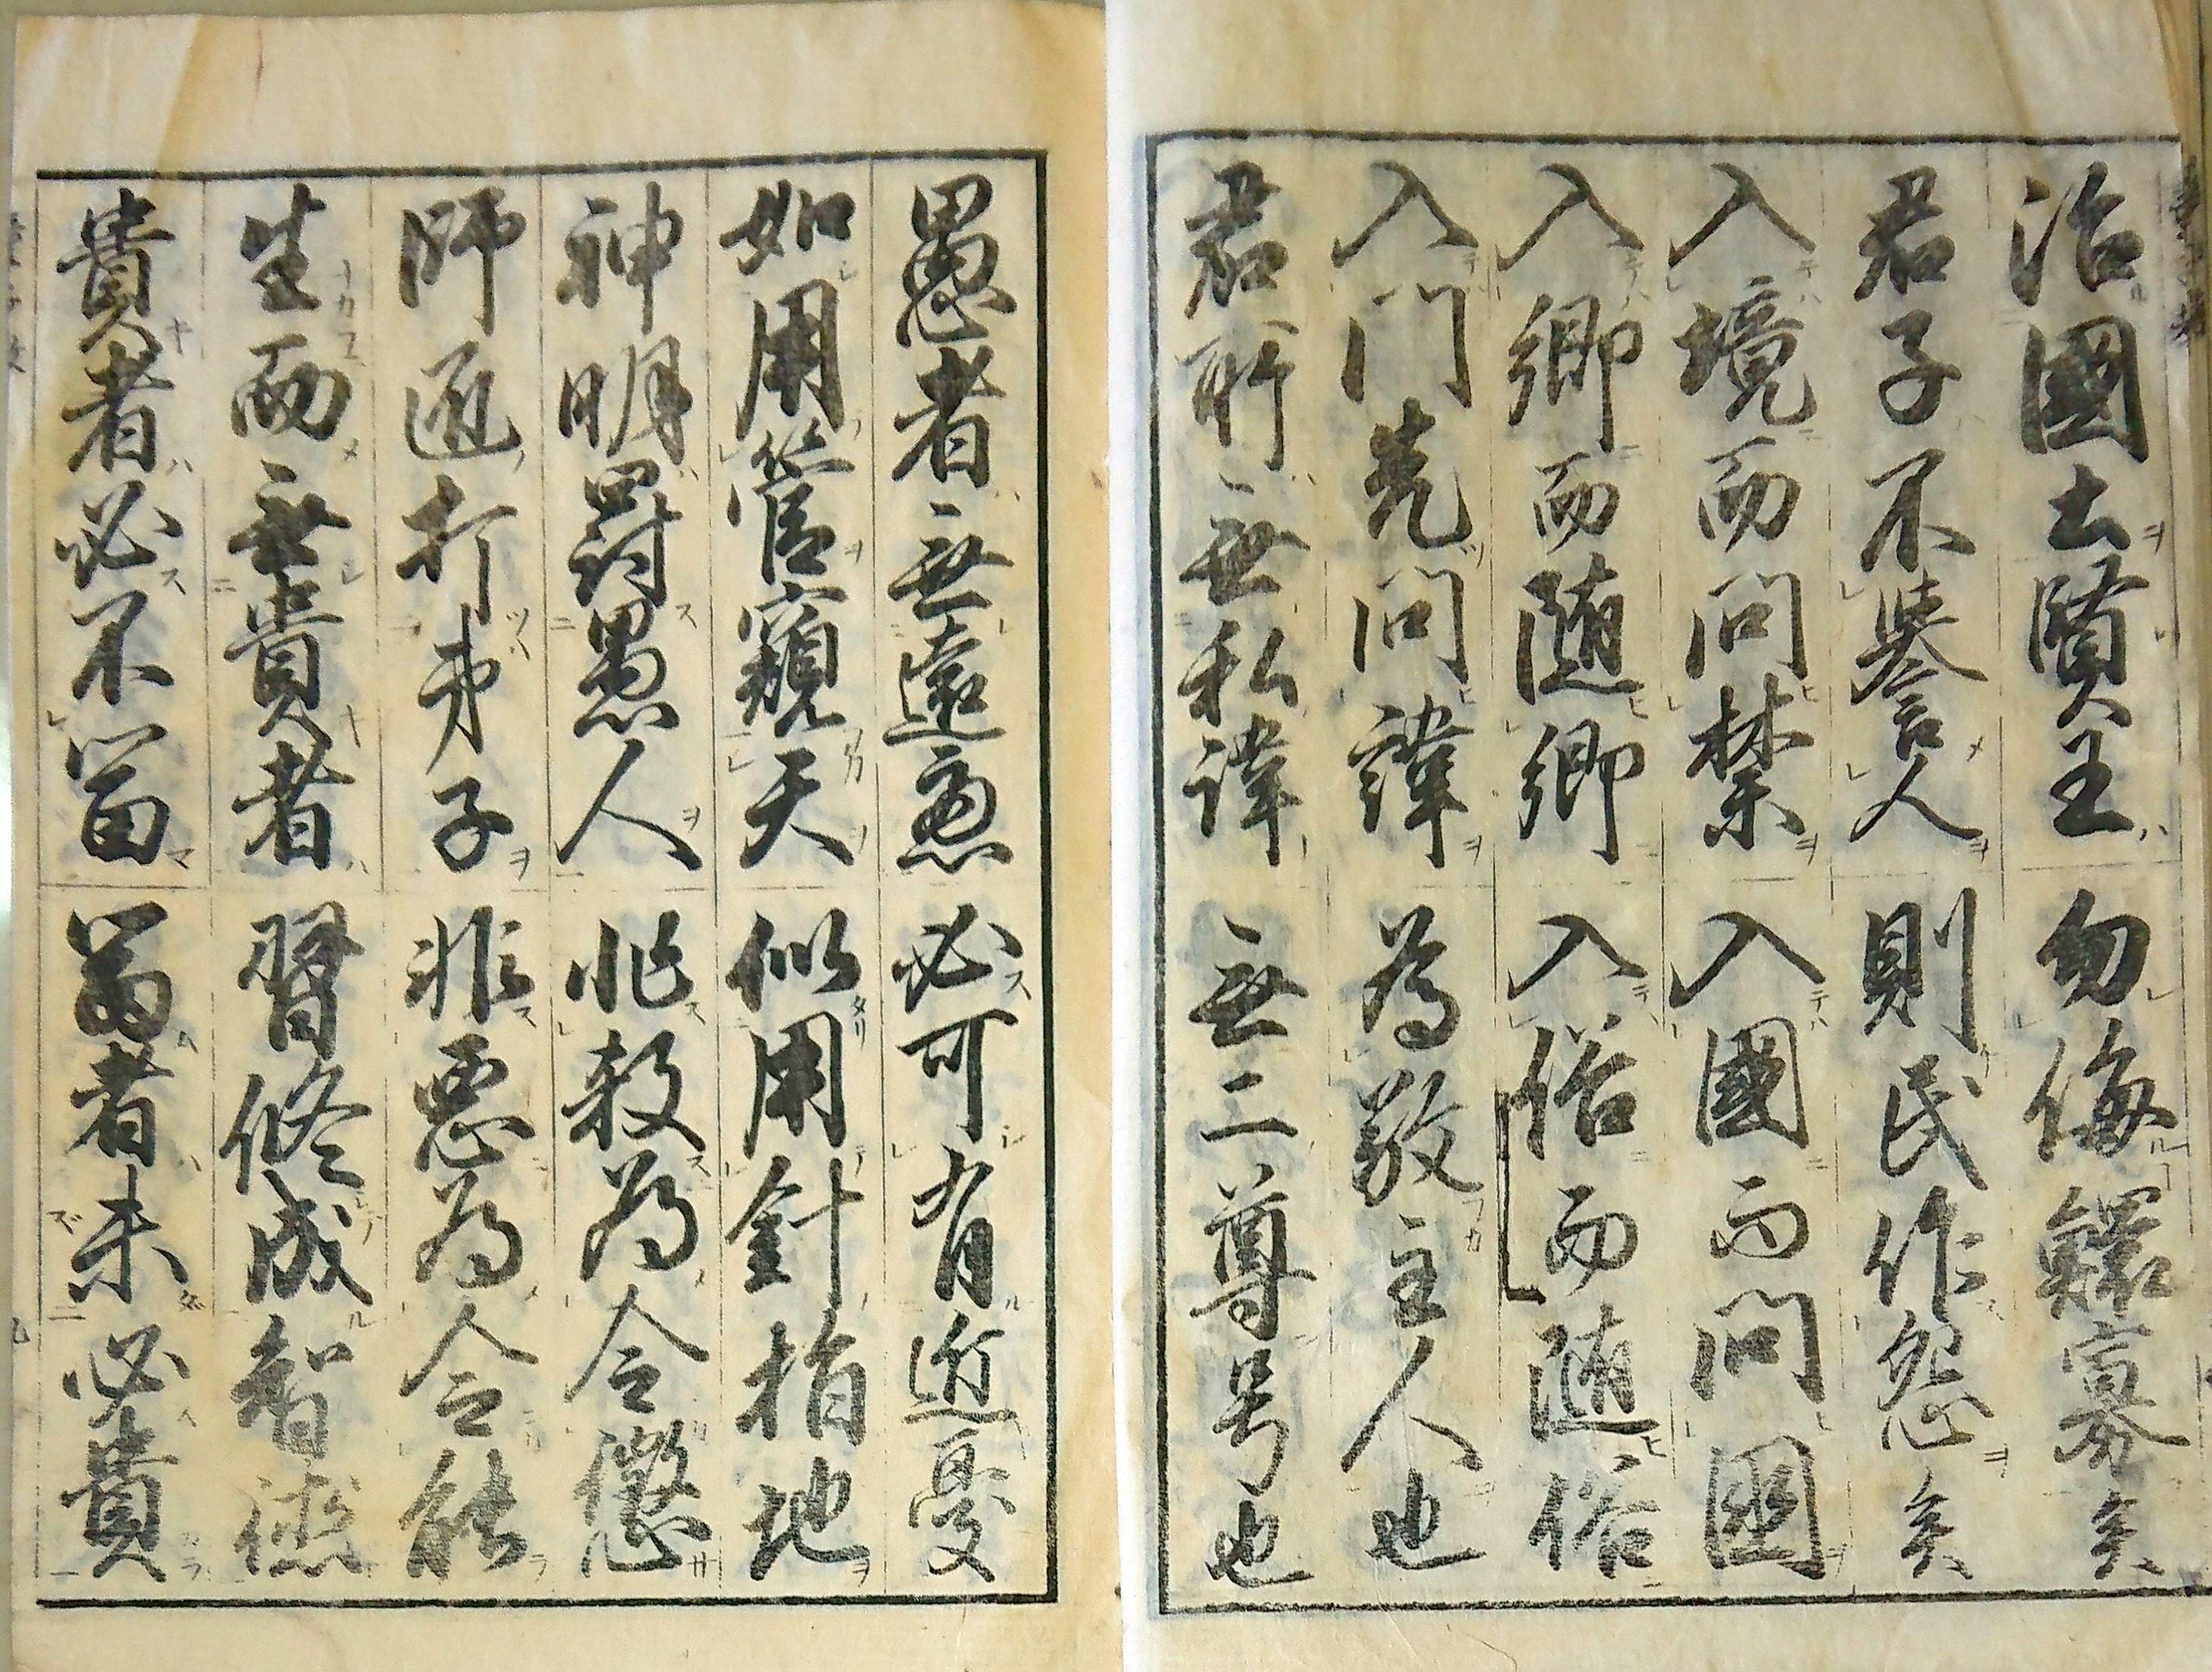 治國土賢王　勿侮鰥寡矣
君子不譽人　則民作怨矣
入境而問禁　入國而問國
入郷而随郷　入俗而随俗
入門先問諱　為敬主人也
君所無私諱　無二尊号也
愚者無遠慮　必可有近憂
如用管窺天　似用針指地
神明罰愚人　非殺為令懲
師匠打弟子　非悪為令能
生而無貴者　習修成智徳
貴者必不冨　冨者未必貴